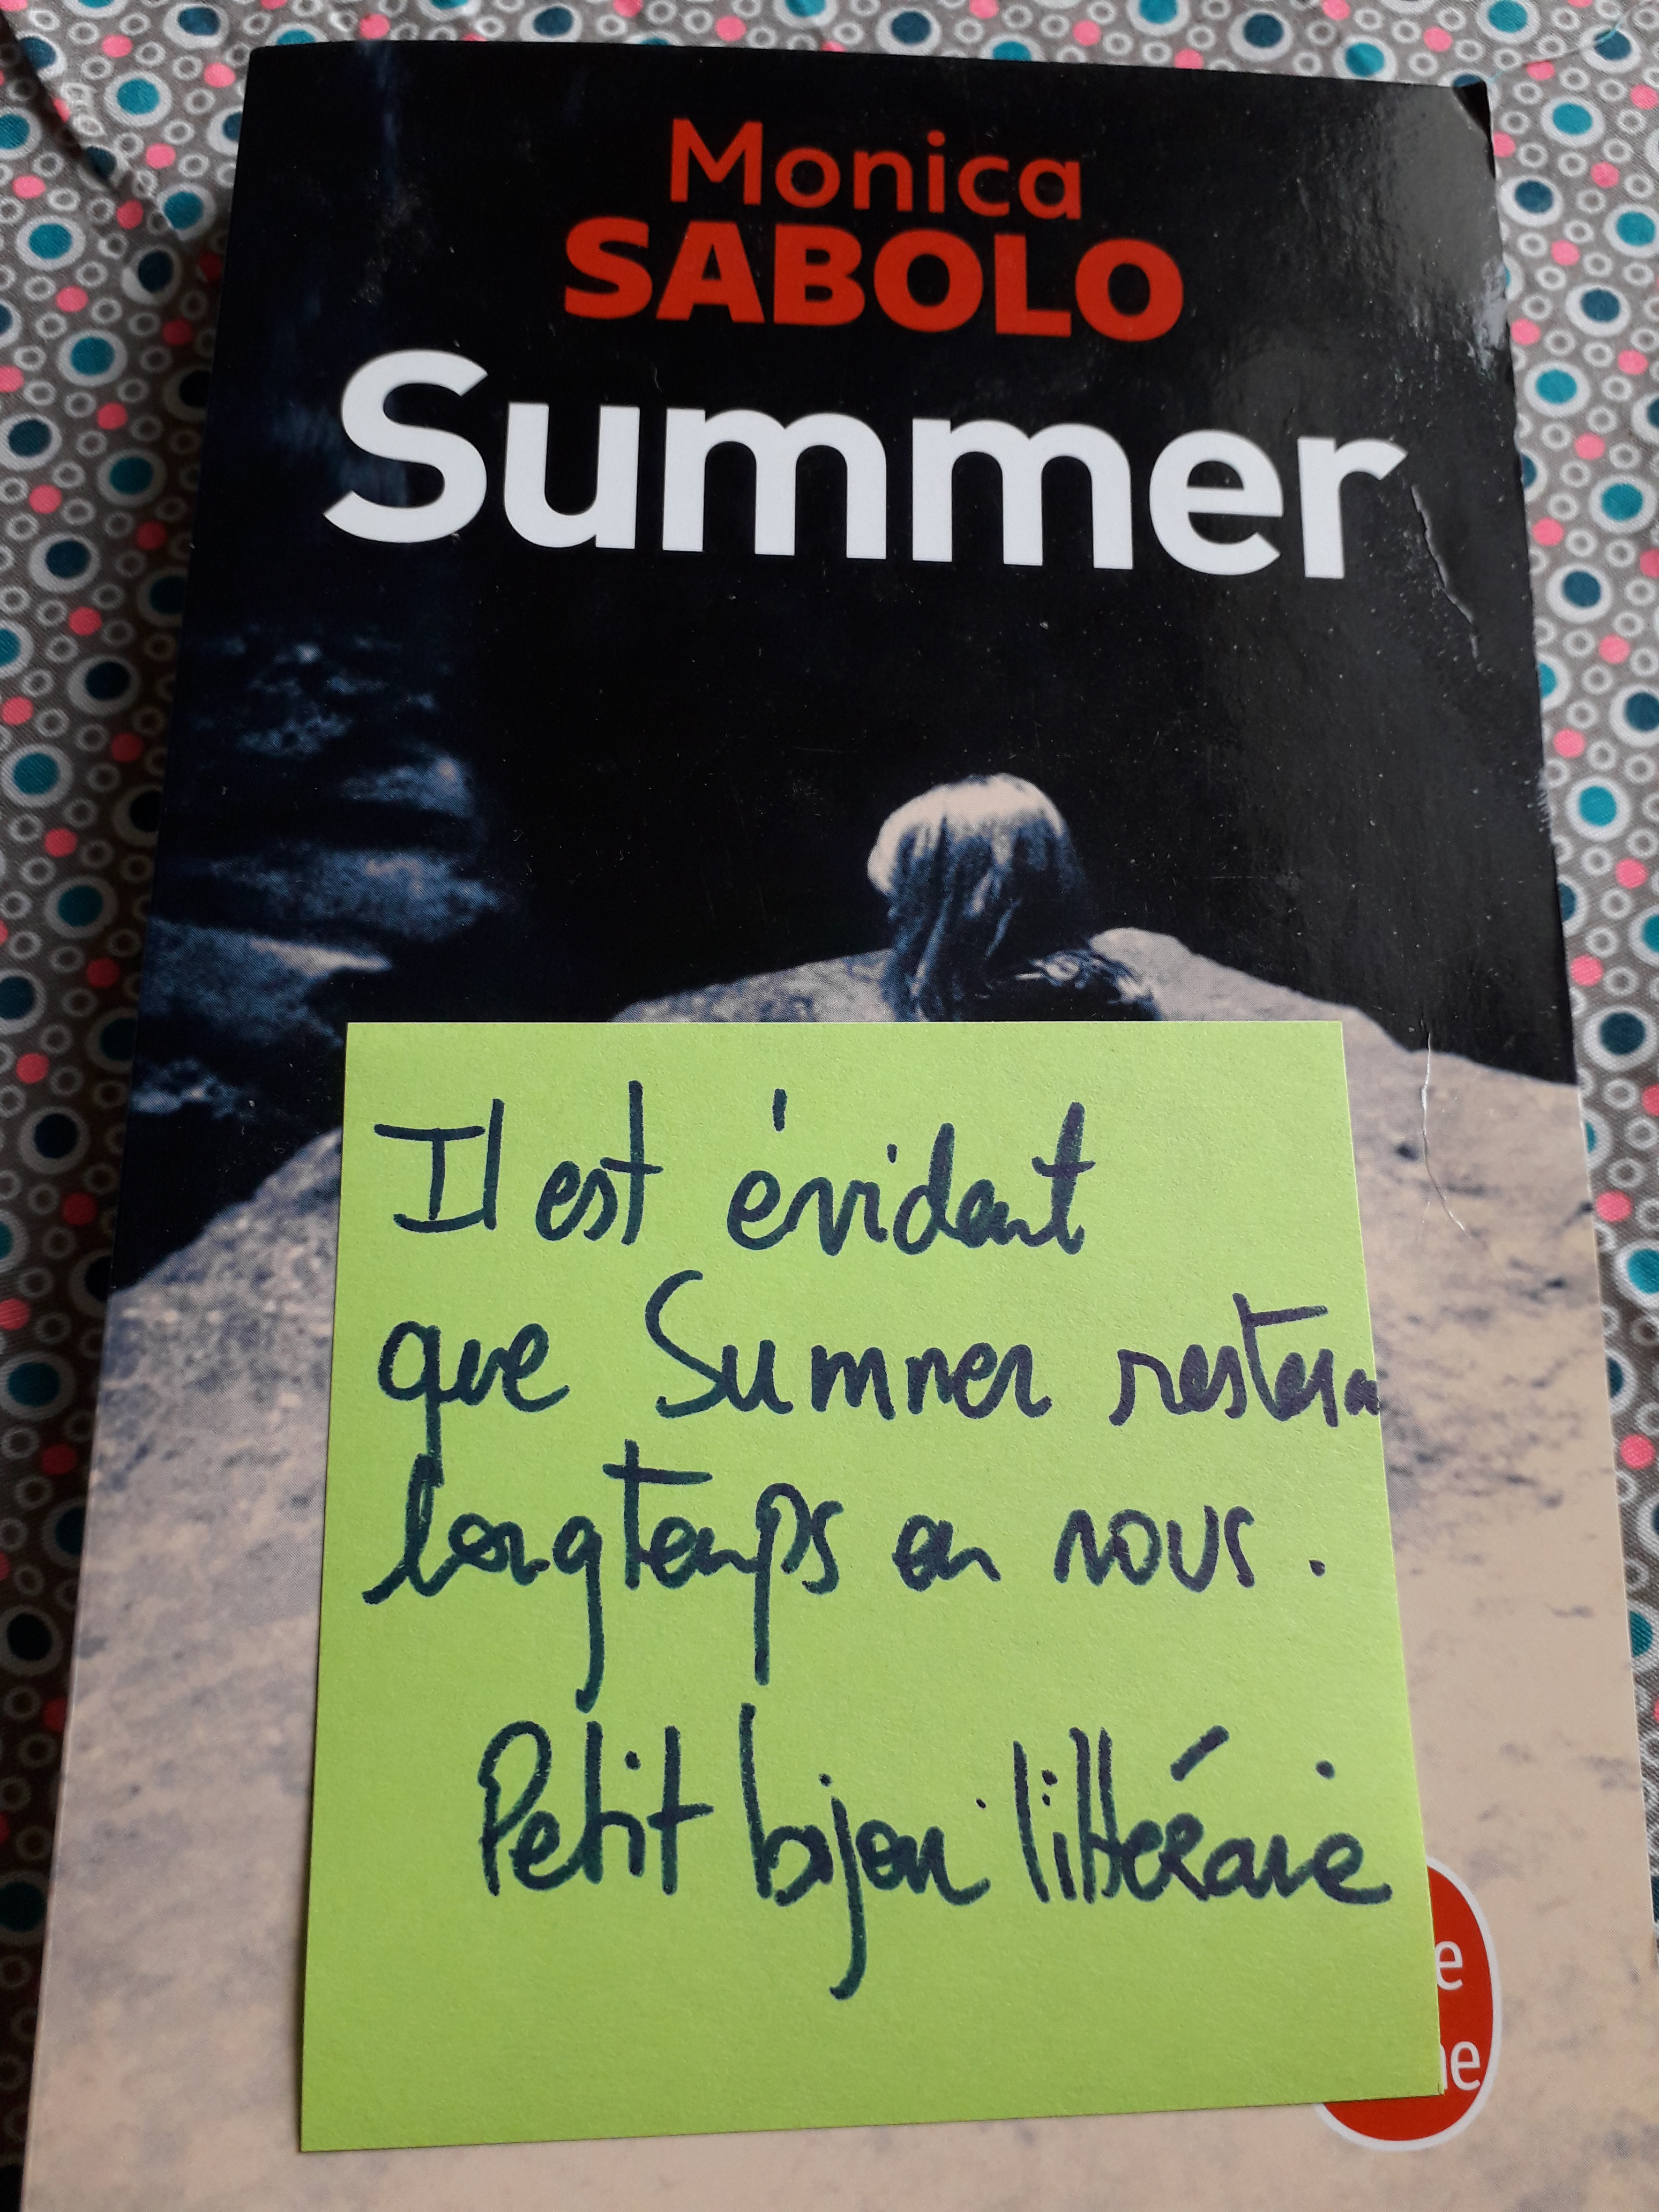 Monica
SABOLO
Summer
Il est évident
que Summer restera
longtemps en nous.
Petit bijou littéraire
e
he